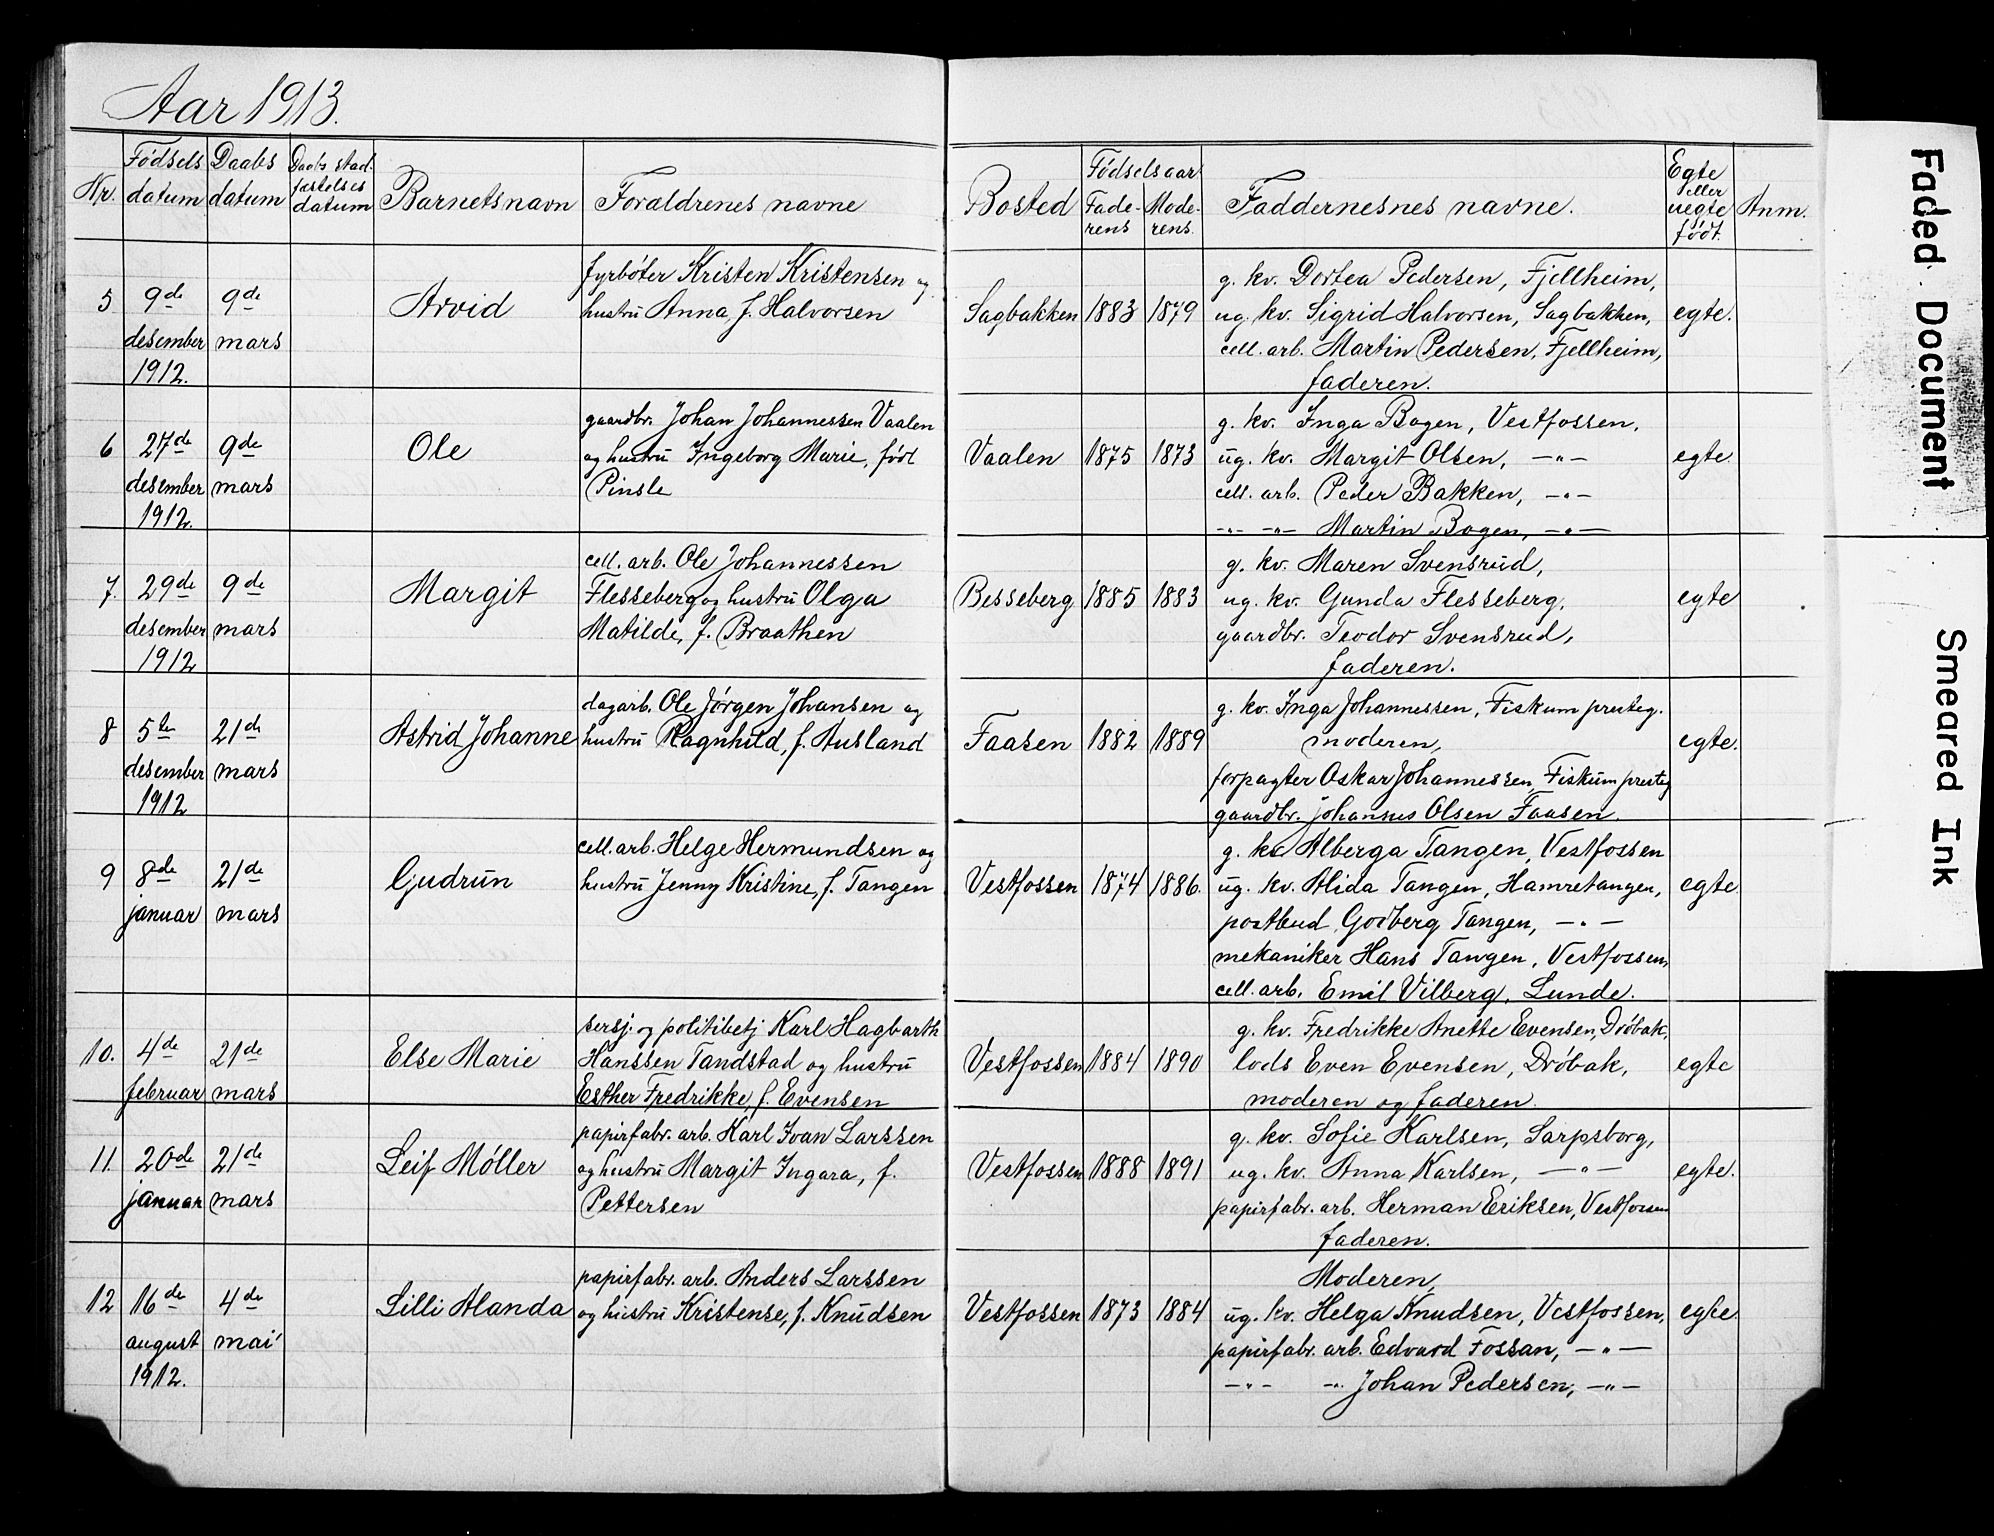 Aar 1913.
Nr. Fødsels datum Daabs datum Daabs stadfæstelses datum Barnetsnavn Foraldrenes navne Bosted Fødselsaar Faderens Moderens Faddernesnes navne. Egte eller uegte født. Anm.
5 9de desember 1912. 9de mars Arvid
fyrbøter Kristen Kristensen og
hustru Anna, f. Halvorsen
Sagbakken 1883 1879
g. kv. Dortea Pedersen, Fjellheim,
ug. kv. Sigrid Halvorsen, Sagbakken,
cell. arb. Martin Pedersen, Fjellheim,
faderen.
egte.
6 27de desember 1912. 9de mars Ole
gaardbr. Johan Johannessen Vaalen
og hustru Ingeborg Marie, født
Pinsle
Vaalen 1875 1873
g. kv. Inga Bogen, Vestfossen,
ug. kv. Margit Olsen, —"—
cell. arb. Peder Bakken, —"—
—"— —"— Martin Bogen, —"—
egte
7. 29de desember 1912 9de mars Margit
cell. arb. Ole Johannessen
Flesseberg og hustru Olga
Matilde, f. Braathen
Besseberg 1885 1883
g. kv. Maren Svensrud,
ug. kv. Gunda Flesseberg,
gaardbr. Teodor Svensrud,
faderen.
egte
8 5te desember 1912 21de mars Astrid Johanne
dagarb. Ole Jørgen Johansen og
hustru Ragnhild, f. Ausland
Faasen 1882 1889
g. kv. Inga Johannessen, Fiskum presteg.
moderen,
forpagter Oskar Johannessen, Fiskum presteg
gaardbr. Johannes Olsen Faasen.
egte.
9 8de januar 21de mars Gjudrun
cell. arb. Helge Hermundsen og
hustru Jenny Kristine, f. Tangen
Vestfossen 1874 1886.
g. kv. Alberga Tangen, Vestfossen
ug. kv. Alida Tangen, Hamretangen,
postbud Godberg Tangen, —"—
mekaniker Hans Tangen, Vestfossen,
cell. arb. Emil Vilberg, Lunde.
egte.
10. 4de februar 21de mars Else Marie
sersj. og politibetj Karl Hagbarth
Hanssen Tandstad og hustru
Esther Fredrikke, f. Evensen
Vestfossen 1884 1890
g. kv. Fredrikke Anette Evensen, Drøbak,
lods Even Evensen, Drøbak,
moderen og faderen.
egte
11. 20de januar 21de mars Leif Møller
papirfabr. arb. Karl Ivan Larssen
og hustru Margit Ingara, f.
Pettersen
Vestfossen 1888 1891
g. kv. Sofie Karlsen, Sarpsborg,
ug. kv. Anna Karlsen, —"—
papirfabr. arb. Herman Eriksen, Vestfossen
faderen.
egte.
12 16de august 1912. 4de mai Lilli Alanda
papirfabr. arb. Anders Larssen
og hustru Kristense, f. Knudsen
Vestfossen 1873 1884
Moderen,
ug. kv. Helga Knudsen, Vestfossen,
papirfabr. arb. Edvard Fossan, —"—
—"— —"— Johan Pedersen, —"—
egte.
Faded Document
Smeared Ink